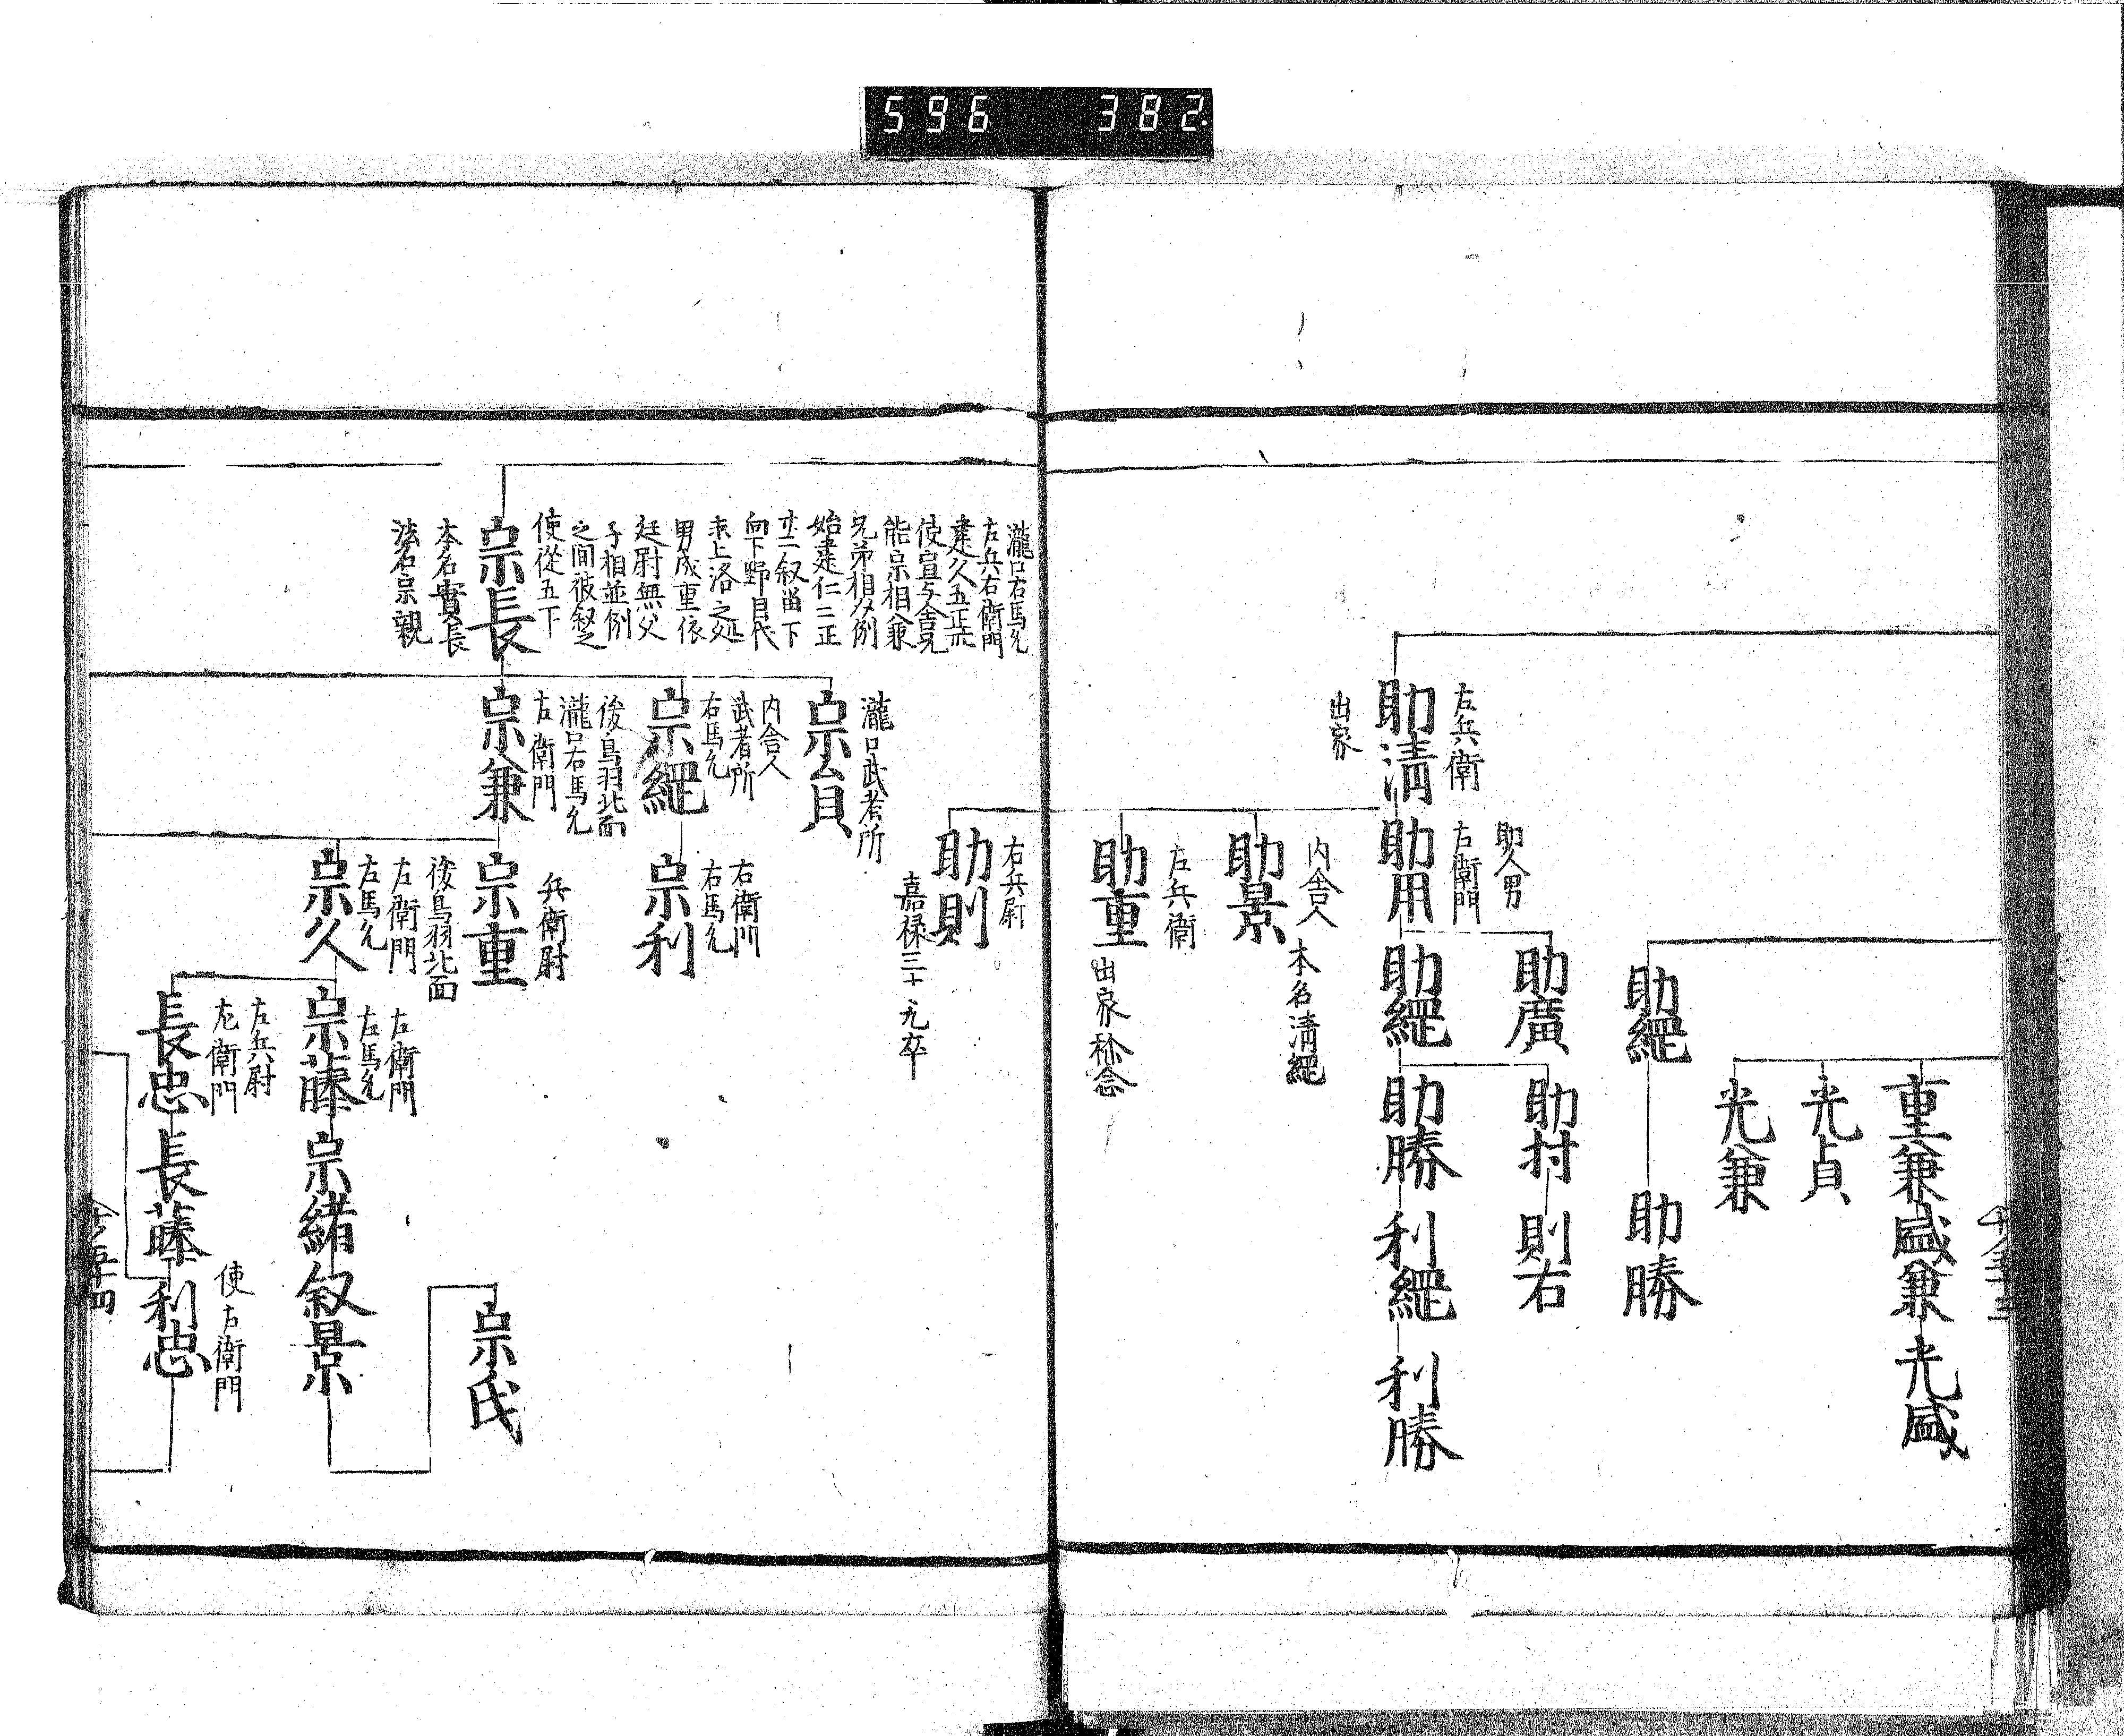 596 382
重兼
盛兼
光盛
光貞
光兼
助縄
助勝
左兵衛
助清
出家
助父男
右衛門
助用
助廣
助縄
助村
則右
助勝
利縄
利勝
内舎人
助景
本名清縄
左兵衛
助重
出家
右兵尉
助則
嘉禄三十元卒
瀧口右馬允
左兵右衛門
建久五正
使宣与舎兄
能宗相兼
兄弟相父例
始建仁二正
廿二叙留下
向下野目代
未上洛之処
男成重依
廷尉無父
子相並例
之間彼叙之
使從五下
宗長
本名實長
法名宗親
瀧口武者所
宗貞
内舎人
武者所
右馬允
宗縄
右衛門
右馬允
宗利
後鳥羽北面
瀧口右馬允
左衛門
宗兼
兵衛尉
宗重
後鳥羽北面
左衛門
左馬允
宗久
右衛門
左馬允
宗藤
宗緒
叙景
宗氏
左兵尉
左衛門
長忠
長藤
使右衛門
利忠